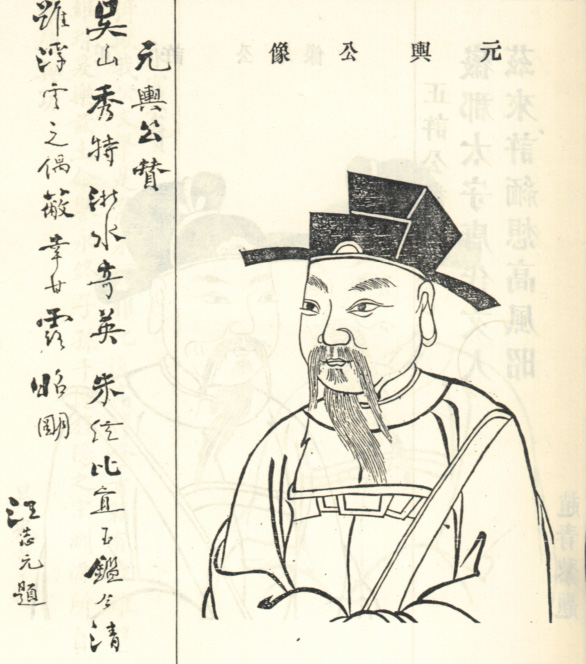 元輿公像
元輿公贊
吳山秀特浙水奇英朱比宣玉鑑清
雖浮雲之偶蔽幸甘露昭
汪志元題